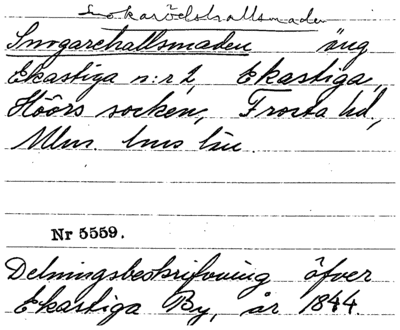 Snogarehallsmaden äng
Ekastiga n:r 2, Ekastiga,
Höörs socken, Frosta hd,
Mlm. hus län.
Nr 5559.
Delningsbeskrifvning öfver
Ekastiga By, år 1844.